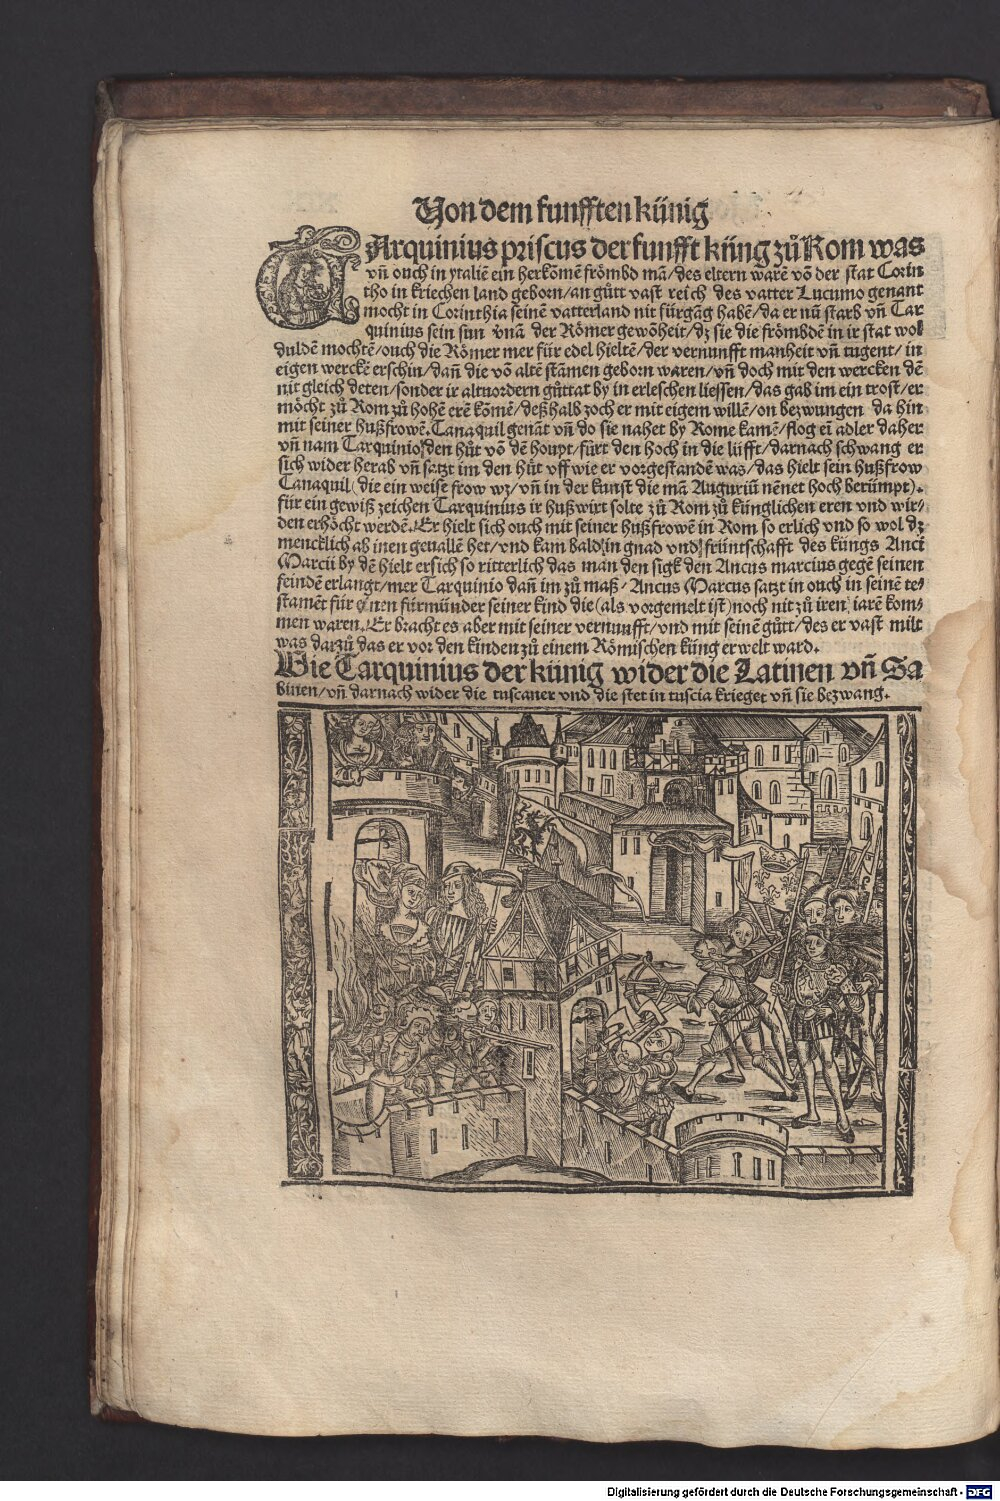 Von dem funfften künig
TArquinius priscus der funfft küng zů Rom was
vn̄ ouch in ytaliē ein herkōmē frömbd mā/des eltern warē vō der stat Corin
tho in kriechen land geborn/an gůtt vast reich des vatter Lucumo genant
mocht in Corinthia seinē vatterland nit fürgāg habē/da er nū starb vn̄ Tar
quinius sein sun vnā der Römer gewōheit/dz sie die frömbdē in ir stat wol
duldē mochtē/ouch die Römer mer für edel hieltē/der vernunfft manheit vn̄ tugent/in
eigen werckē erschin/dan̄ die vō altē stāmen geborn waren/vn̄ doch mit den wercken dē
nit gleich deten/sonder ir altuordern gůttat by in erleschen liessen/das gab im ein trost/er
möcht zů Rom zů hohē erē kōmē/deßhalb zoch er mit eigem willē/on bezwungen da hin
mit seiner hußfrowē. Tanaquil genāt vn̄ do sie nahet by Rome kamē/flog ei adler daher
vn̄ nam Tarquinio den hůt vō dē houpt/fürt den hoch in die lüfft/darnach schwang er
sich wider herab vn̄ satzt im den hůt vff wie er vorgestandē was/das hielt sein hußfrow
Tanaquil (die ein weise frow wz/vn̄ in der kunst die mā Auguriū nēnet hoch berümpt).
für ein gewiß zeichen Tarquinius ir hußwirt solte zů Rom zů künglichen eren vnd wir/
den erhöcht werdē. Er hielt sich ouch mit seiner hußfrowē in Rom so erlich vnd so wol dz
mencklich ab inen geuallē het/vnd kam bald in gnad vnd früntschafft des küngs Anci
Marcii by dē hielt er sich so ritterlich das man den sigk den Ancus marcius gegē seinen
feindē erlangt/mer Tarquinio dan̄ im zů maß. Ancus Marcus satzt in ouch in seinē te/
stamēt für einen fürmünder seiner kind die (als vorgemelt ist) noch nit zů iren iarē kom/
men waren. Er bracht es aber mit seiner vernunfft/vnd mit seinē gůtt/des er vast milt
was darzů das er vor den kinden zů einem Römischen küng erwelt ward.
Wie Tarquinius der künig wider die Latinen vn̄ Sa
binen/vn̄ darnach wider die tuscaner vnd die stet in tuscia krieget vn̄ sie bezwang.
Digitalisierung gefördert durch die Deutsche Forschungsgemeinschaft - DFG